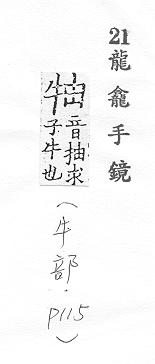 21 龍龕手鏡
音抽求
子牛也
(牛部. p115)